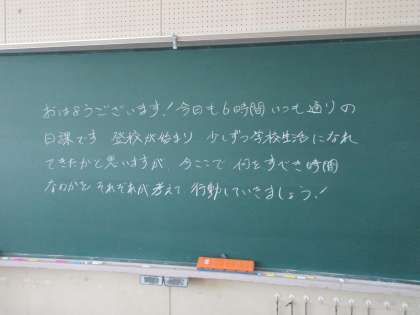 おはようございます！今日も6時間いつも通りの
日課です 登校が始まり 少しずつ学校生活になれ
てきたかと思いますが、今ここで 何をすべき時間
なのかを それぞれが考えて 行動していきましょう！